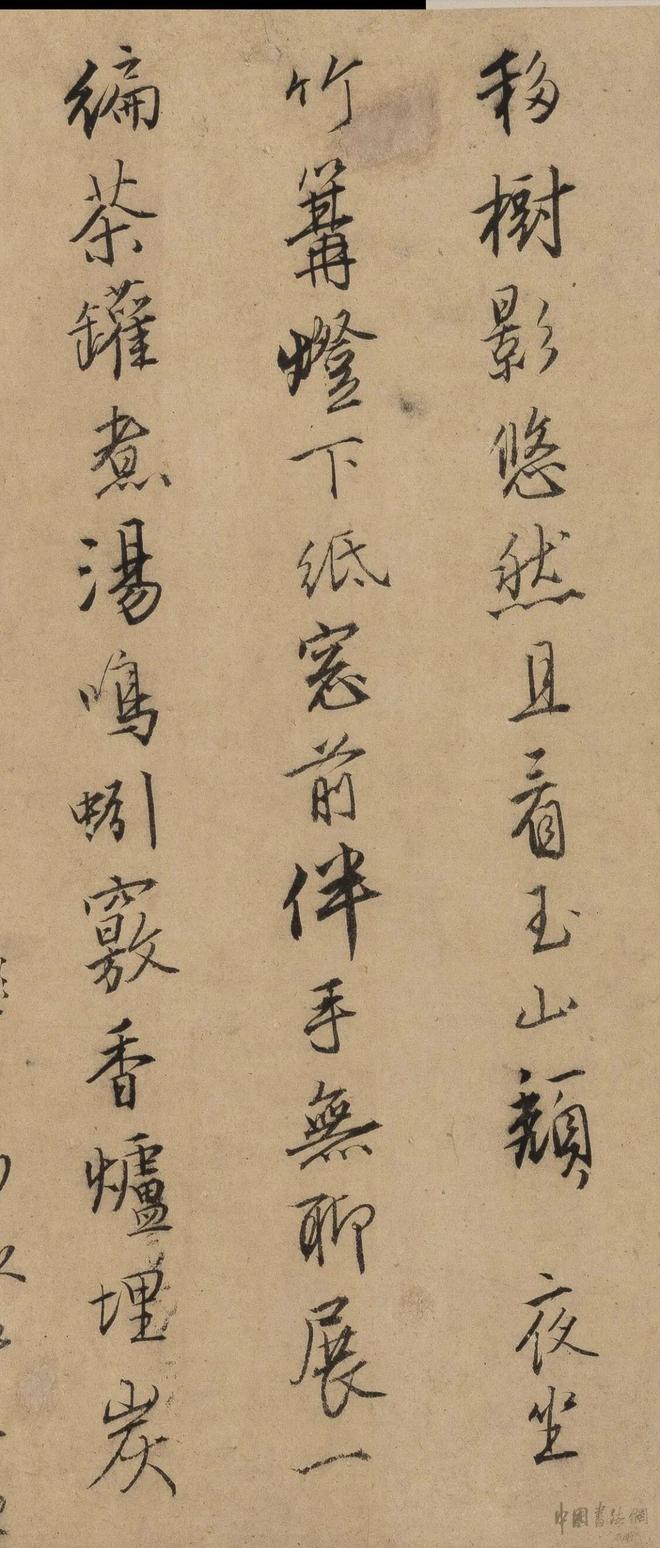 移樹影悠然且看玉山頽　夜坐
竹篝燈下紙窓前伴手無聊展一
編茶罐煮湯鳴蚓竅香爐埋炭
中国書法網